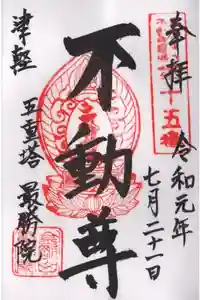 奉拝
十五番
令和元年
七月二十一日
不動尊
津軽
五重塔
最勝院